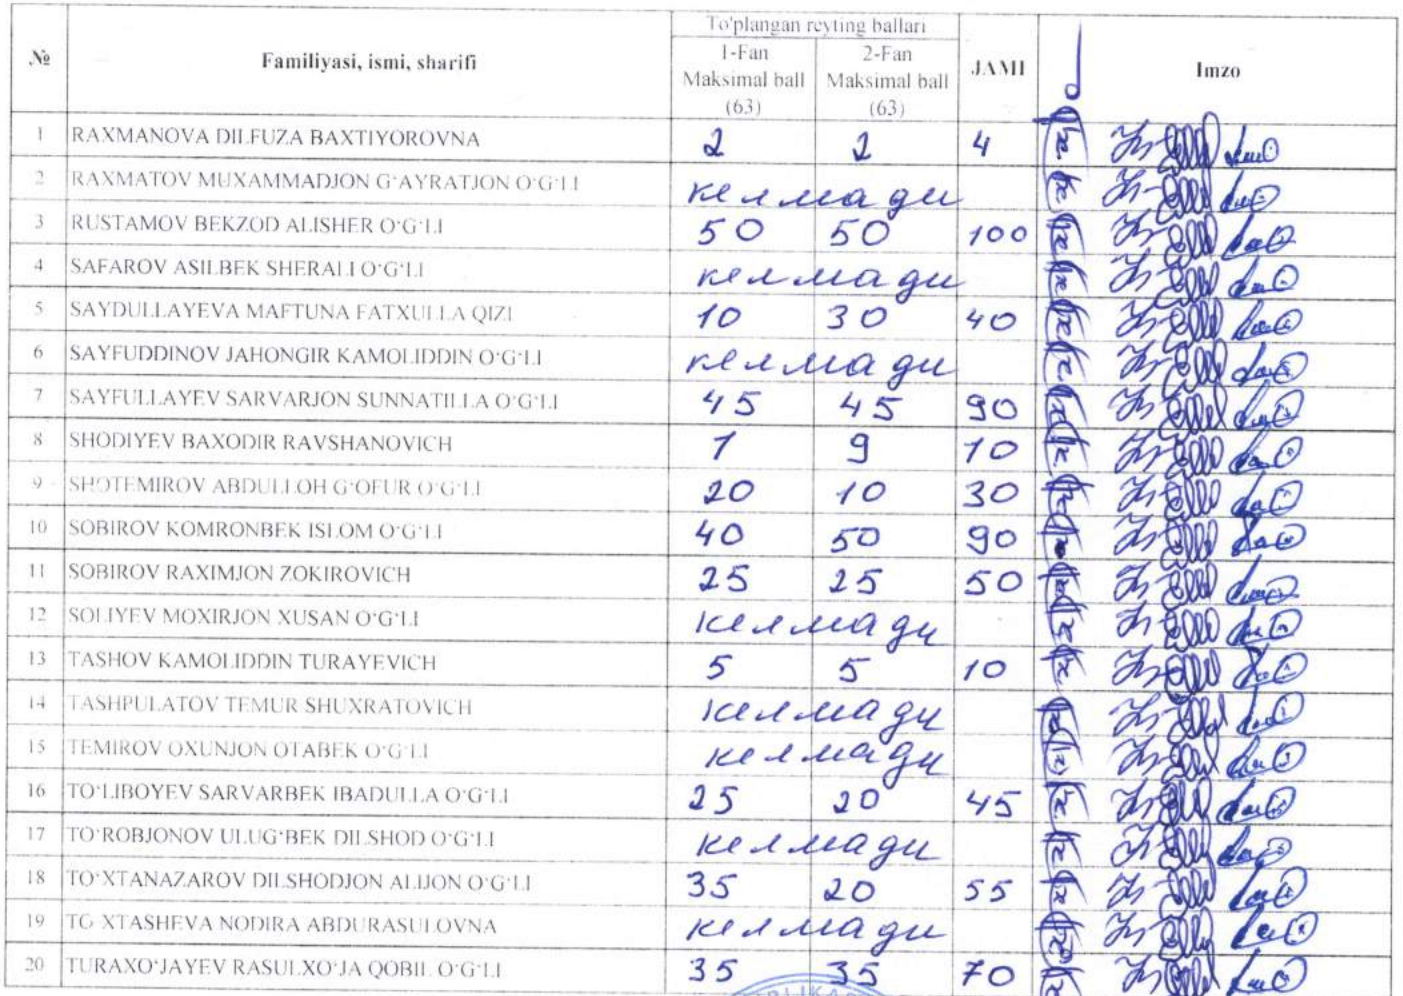 № Familiyasi, ismi, sharifi To'plangan reyting ballari JAMI Imzo
1-Fan Maksimal ball (63) 2-Fan Maksimal ball (63)
1 RAXMANOVA DILFUZA BAXTIYOROVNA 2 2 4
2 RAXMATOV MUXAMMADJON G‘AYRATJON O‘G‘LI келмади
3 RUSTAMOV BEKZOD ALISHER O‘G‘LI 50 50 100
4 SAFAROV ASILBEK SHERALI O‘G‘LI келмади
5 SAYDULLAYEVA MAFTUNA FATXULLA QIZI 10 30 40
6 SAYFUDDINOV JAHONGIR KAMOLIDDIN O‘G‘LI келмади
7 SAYFULLAYEV SARVARJON SUNNATILLA O‘G‘LI 45 45 90
8 SHODIYEV BAXODIR RAVSHANOVICH 1 9 10
9 SHOTEMIROV ABDULLOH G‘OFUR O‘G‘LI 20 10 30
10 SOBIROV KOMRONBEK ISLOM O‘G‘LI 40 50 90
11 SOBIROV RAXIMJON ZOKIROVICH 25 25 50
12 SOLIYEV MOXIRJON XUSAN O‘G‘LI келмади
13 TASHOV KAMOLIDDIN TURAYEVICH 5 5 10
14 TASHPULATOV TEMUR SHUXRATOVICH келмади
15 TEMIROV OXUNJON OTABEK O‘G‘LI келмади
16 TO‘LIBOYEV SARVARBEK IBADULLA O‘G‘LI 25 20 45
17 TO‘ROBJONOV ULUG‘BEK DILSHOD O‘G‘LI келмади
18 TO‘XTANAZAROV DILSHODJON ALIJON O‘G‘LI 35 20 55
19 TO‘XTASHEVA NODIRA ABDURASULOVNA келмади
20 TURAXO‘JAYEV RASULXO‘JA QOBIL O‘G‘LI 35 35 70